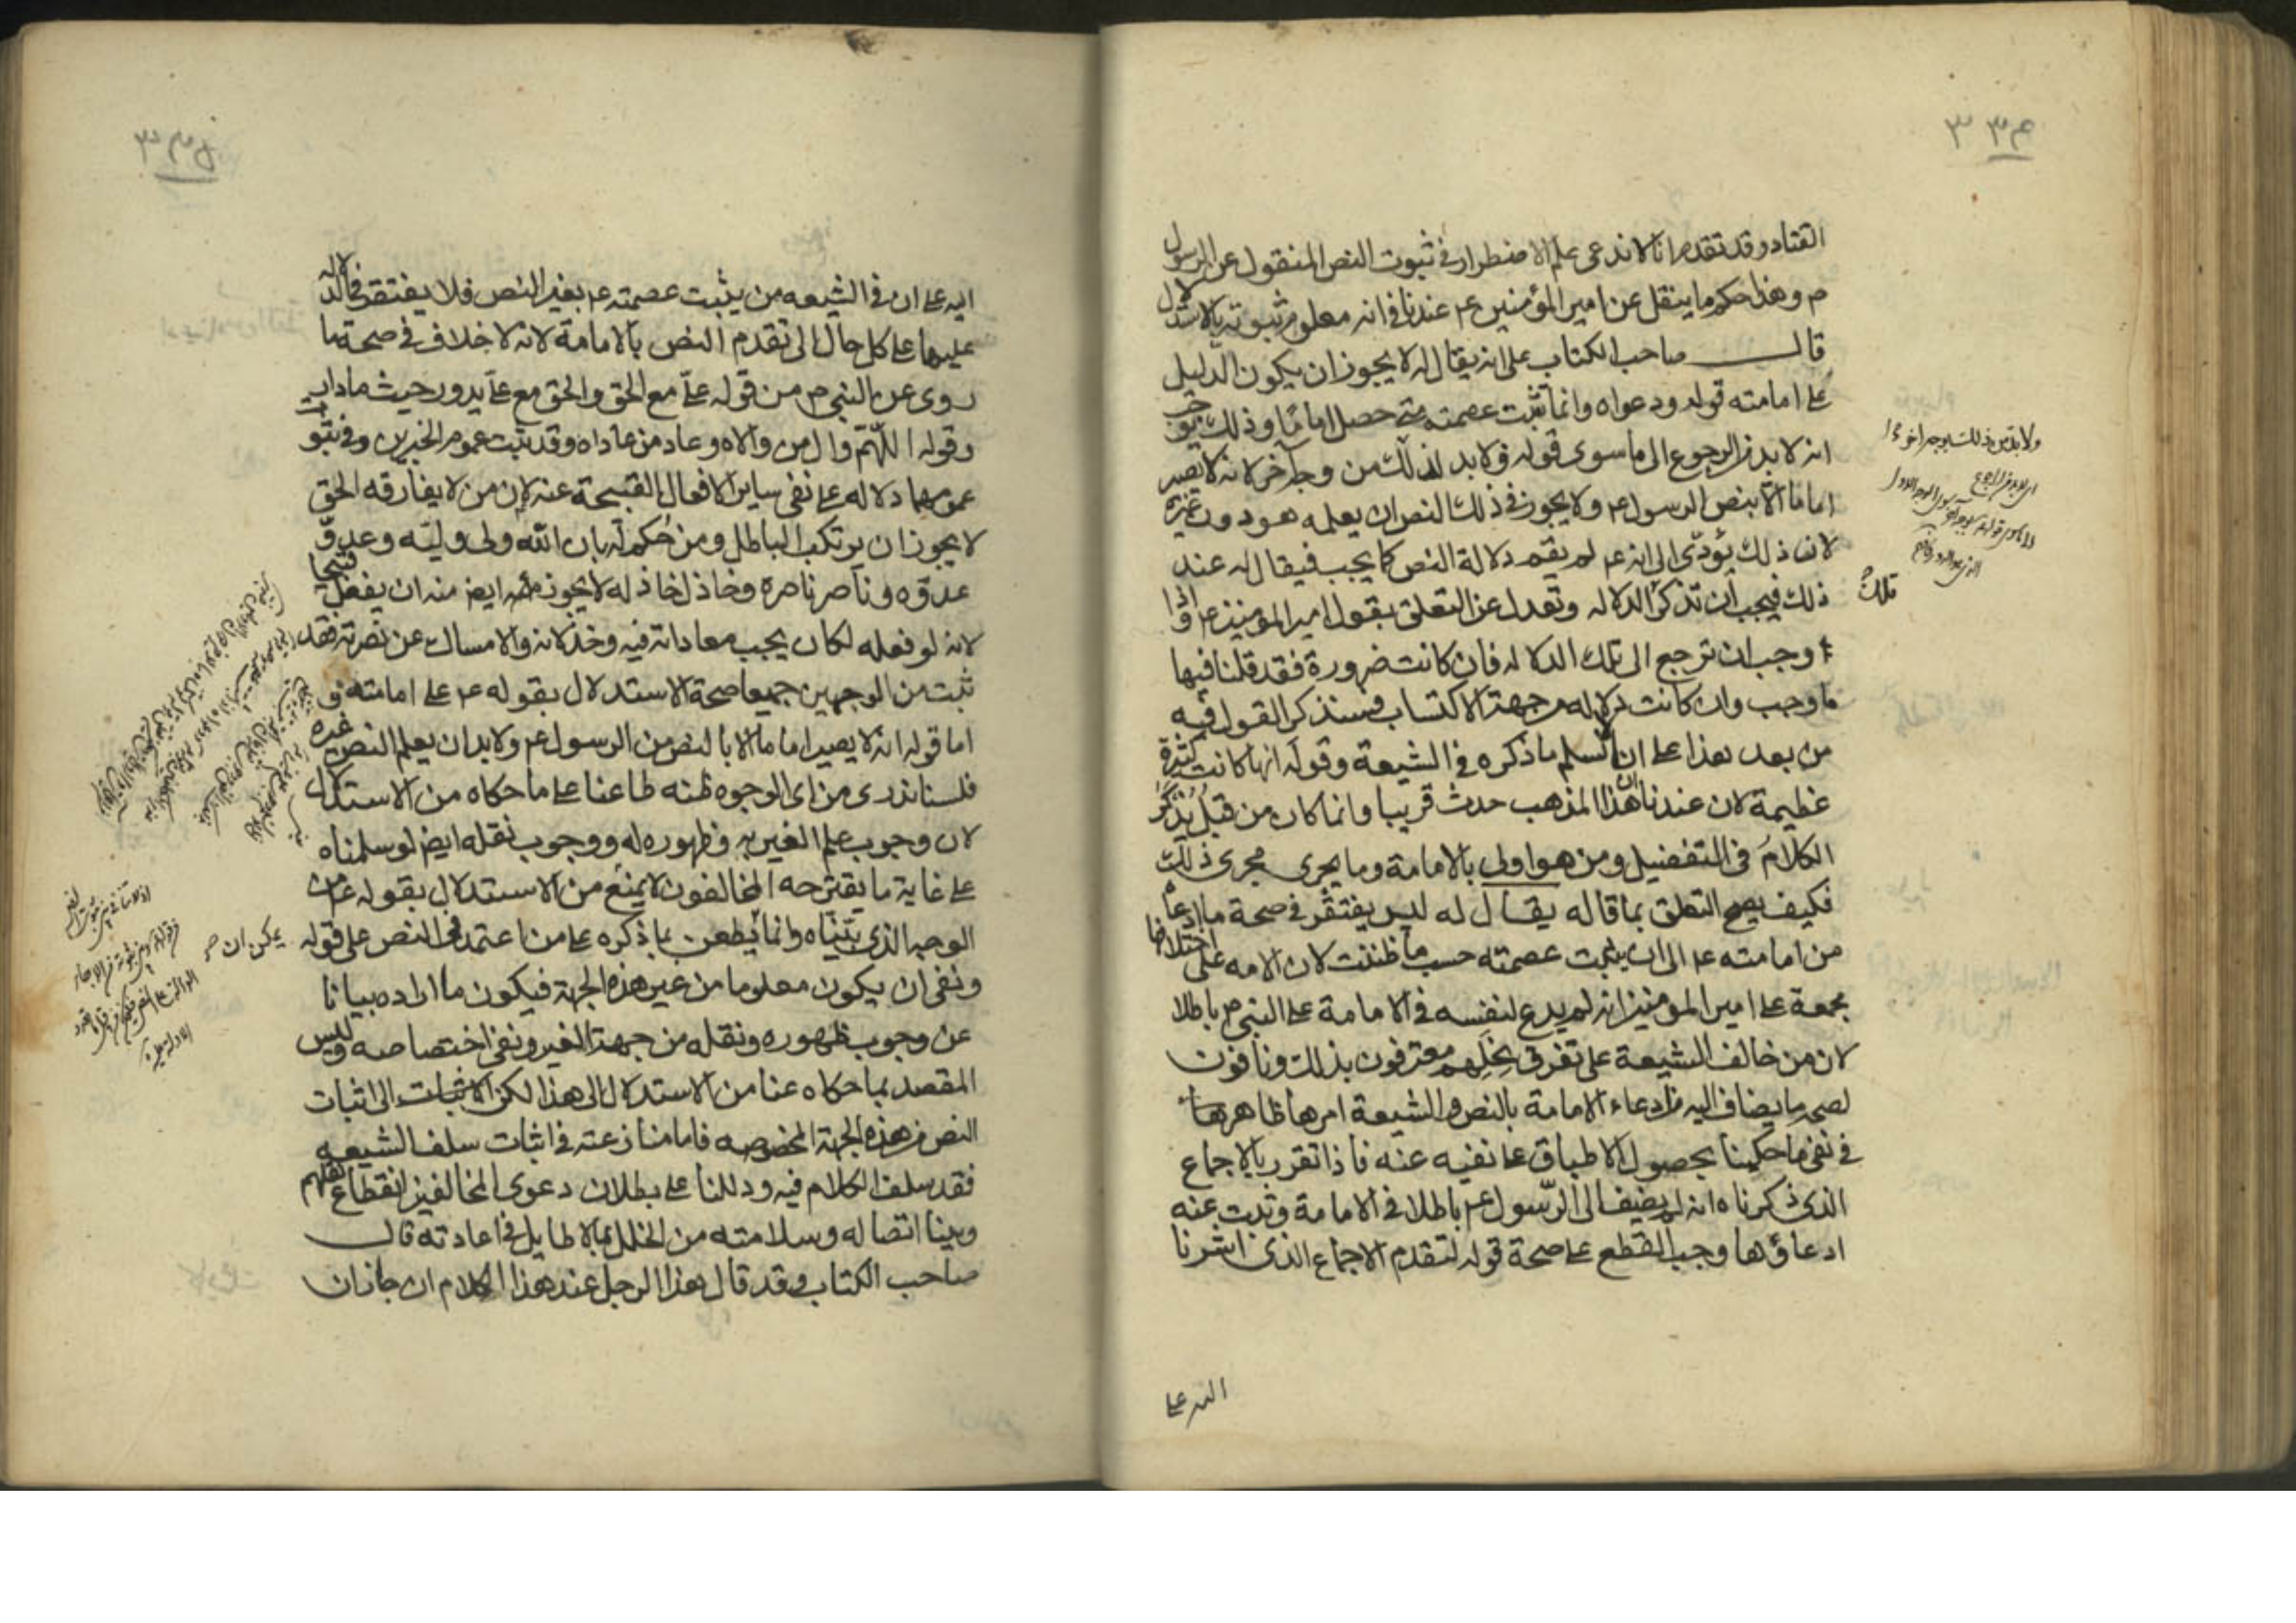 القتاد وقد تقدم انا لا ندعى علم الاضطرار فى ثبوت النص المنقول عن الرسول
م وهذا حكم ما ينقل عن امير المؤمنين عم عندنا فى انه معلوم ثبوته بالاستدلال
قال صاحب الكتاب على انه يقال له لا يجوز ان يكون الدليل
على امامته قوله ودعواه وانما تثبت عصمته متى حصل اماما وذلك يوجب
انه لا بد من الرجوع الى ما سوى قوله ولا بد لذلك من وجه آخر لانه لا يصير
اماما الا بنص الرسول عم ولا يجوز فى ذلك النص ان يعلمه هو دون غيره
لان ذلك يؤدى الى انه عم لم يقم دلالة النص كما يجب فيقال له عند
ذلك فيجب ان تذكر الدلاله وتعدل عن التعلق بقول امير المؤمنين عم واذا
وجب ان نرجع الى تلك الدلاله فان كانت ضرورة فقد قلنا فيها
ما وجب وان كانت دلاله من جهة الاكتساب فسنذكر القول فيه
من بعد هذا على انا لا نسلم ما ذكره فى الشيعة وقوله انها كانت كثيرة
عظيمة لان عندنا ان هذا المذهب حدث قريبا وانما كان من قبل يذكر
الكلام فى التفضيل ومن هو اولى بالامامة وما يجرى مجرى ذلك
فكيف يصح التعلق بما قاله يقال له ليس يفتقر فى صحة ما ادعاه
من امامته عم الى ان يثبت عصمته حسب ما ظننت لان الامه على اختلافها
مجمعة على امير المؤمنين انه لم يدع لنفسه فى الامامة على النبى م باطلا
لان من خالف الشيعة على تفرق نحلهم معترفون بذلك ونافون
لصحه ما يضاف اليه من ادعاء الامامة بالنص والشيعة امرها ظاهر
فى نفى ما حكينا بحصول الاطباق على نفيه عنه فاذا تقرر بالاجماع
الذى ذكرناه انه لم يضف الى الرسول عم باطلا فى الامامة وثبت عنه
ادعاؤها وجب القطع على صحة قوله لتقدم الاجماع الذى اشرنا
تلك
اليه على
اليه على ان فى الشيعه من يثبت عصمته عم بغير النص فلا يفتقر فى الدلاله
عليها على كل حال الى تقدم النص بالامامة لانه لا خلاف فى صحة ما
روى عن النبى م من قوله على مع الحق والحق مع على يدور حيث ما دار
وقوله اللهم وال من والاه وعاد من عاداه وقد ثبت عموم الخبرين وفى ثبوت
عمومهما دلاله على نفى ساير الافعال القبيحة عنه لان من لا يفارقه الحق
لا يجوز ان يرتكب الباطل ومن حكم له بان الله ولى وليه وعدو
عدوه وناصر ناصره وخاذل خاذله لا يجوز ايض منه ان يفعل قبيحا
لانه لو فعله لكان يجب معاداته فيه وخذلانه والامساك عن نصرته فقد
ثبت من الوجهين جميعا صحة الاستدلال بقوله عم على امامته و
اما قوله انه لا يصير اماما الا بالنص من الرسول عم ولا بد ان يعلم النص غيره
فلسنا ندرى من اى الوجوه ظنه طاعنا على ما حكاه من الاستدلال
لان وجوب علم الغير به وظهوره له ووجوب نقله ايض لو سلمناه
على غاية ما يقترحه المخالفون لا يمنع من الاستدلال بقوله عم من
الوجه الذى بيناه وانما يطعن بما ذكره على من اعتمد فى النص على قوله
ونفى ان يكون معلوما من غير هذه الجهة فيكون ما اراده بيانا
عن وجوب ظهوره ونقله من جهة الغير ونفى اختصاصه وليس
المقصد بما حكاه عنا من الاستدلال الى هذا لكن الى اثبات
النص من هذه الجهة المخصوصه فاما منازعته فى اثبات سلف الشيعه
فقد سلف الكلام فيه ودللنا على بطلان دعوى المخالفين انقطاع نقلهم
وبينا اتصاله وسلامته من الخلل بما لا طايل فى اعادته قال
صاحب الكتاب وقد قال هذا الرجل عند هذا الكلام ان جاز ان
يمكن ان